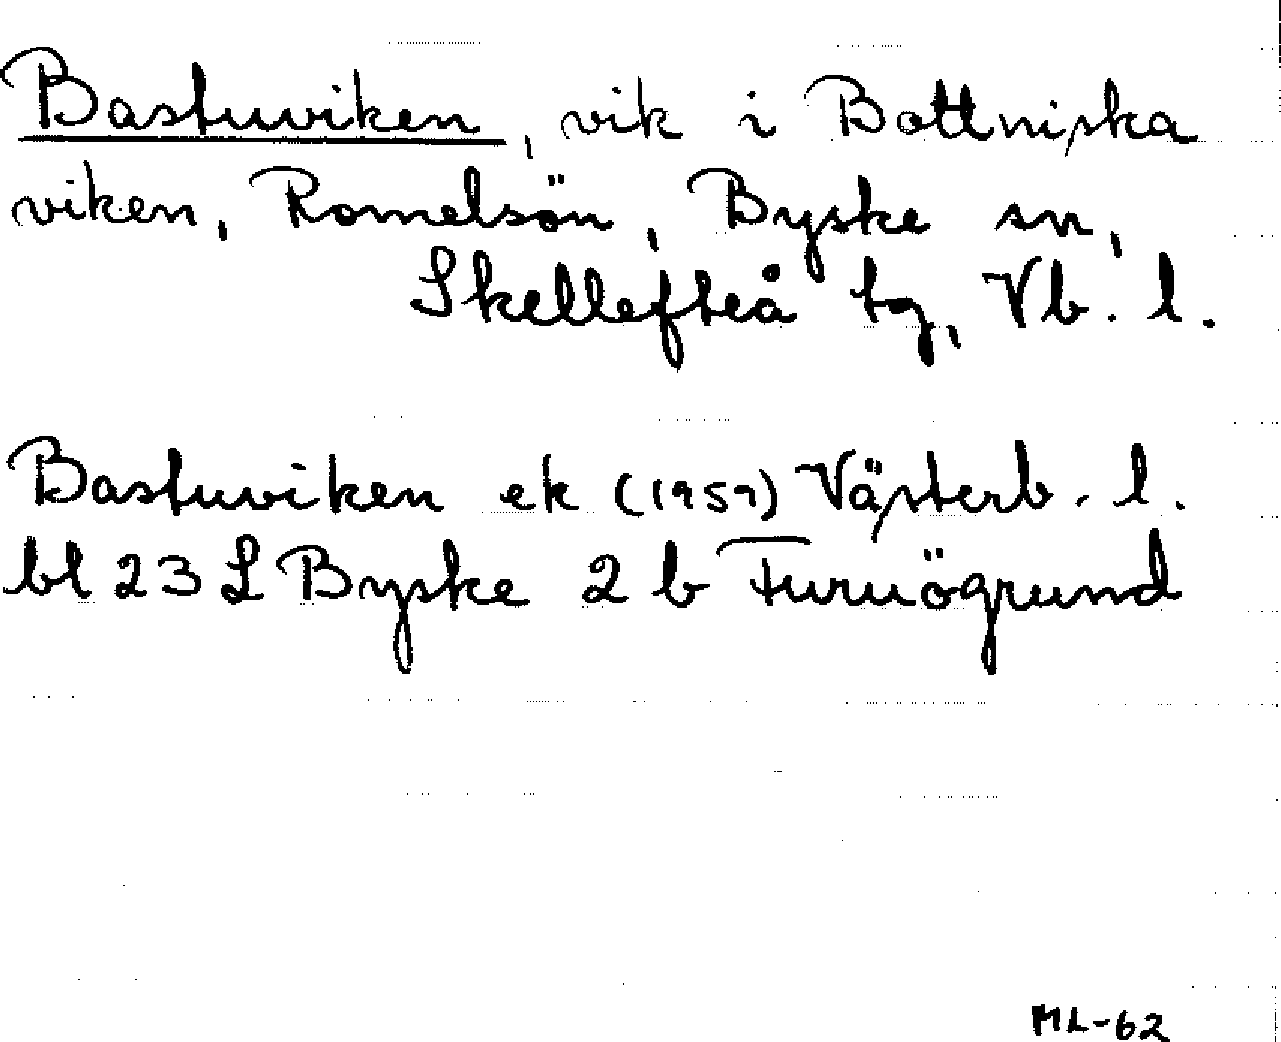 Bastuviken, vik i Bottniska
viken, Romelsön, Byske sn,
Skellefteå tg, Vb. l.
Bastuviken ek (1959) Västerb. l.
bl 23 L Byske 2 b Furuögrund
ML-62